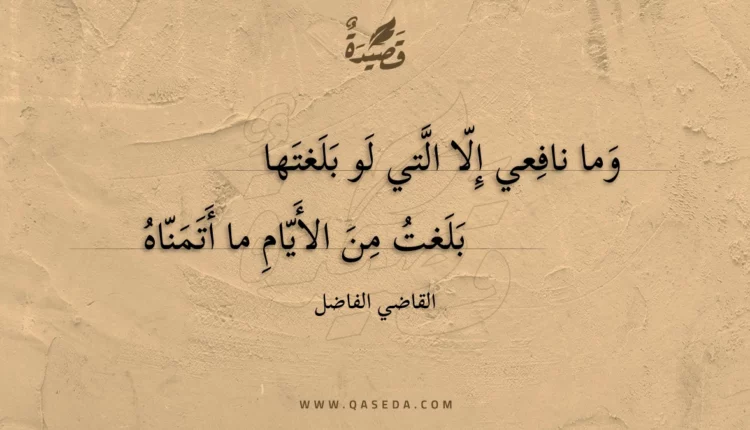 قَصِيدَةٌ
وَما نافِعي إِلّا الَّتي لَو بَلَغتَها
بَلَغتُ مِنَ الأَيّامِ ما أَتَمَنّاهُ
القاضي الفاضل
WWW.QASEDA.COM